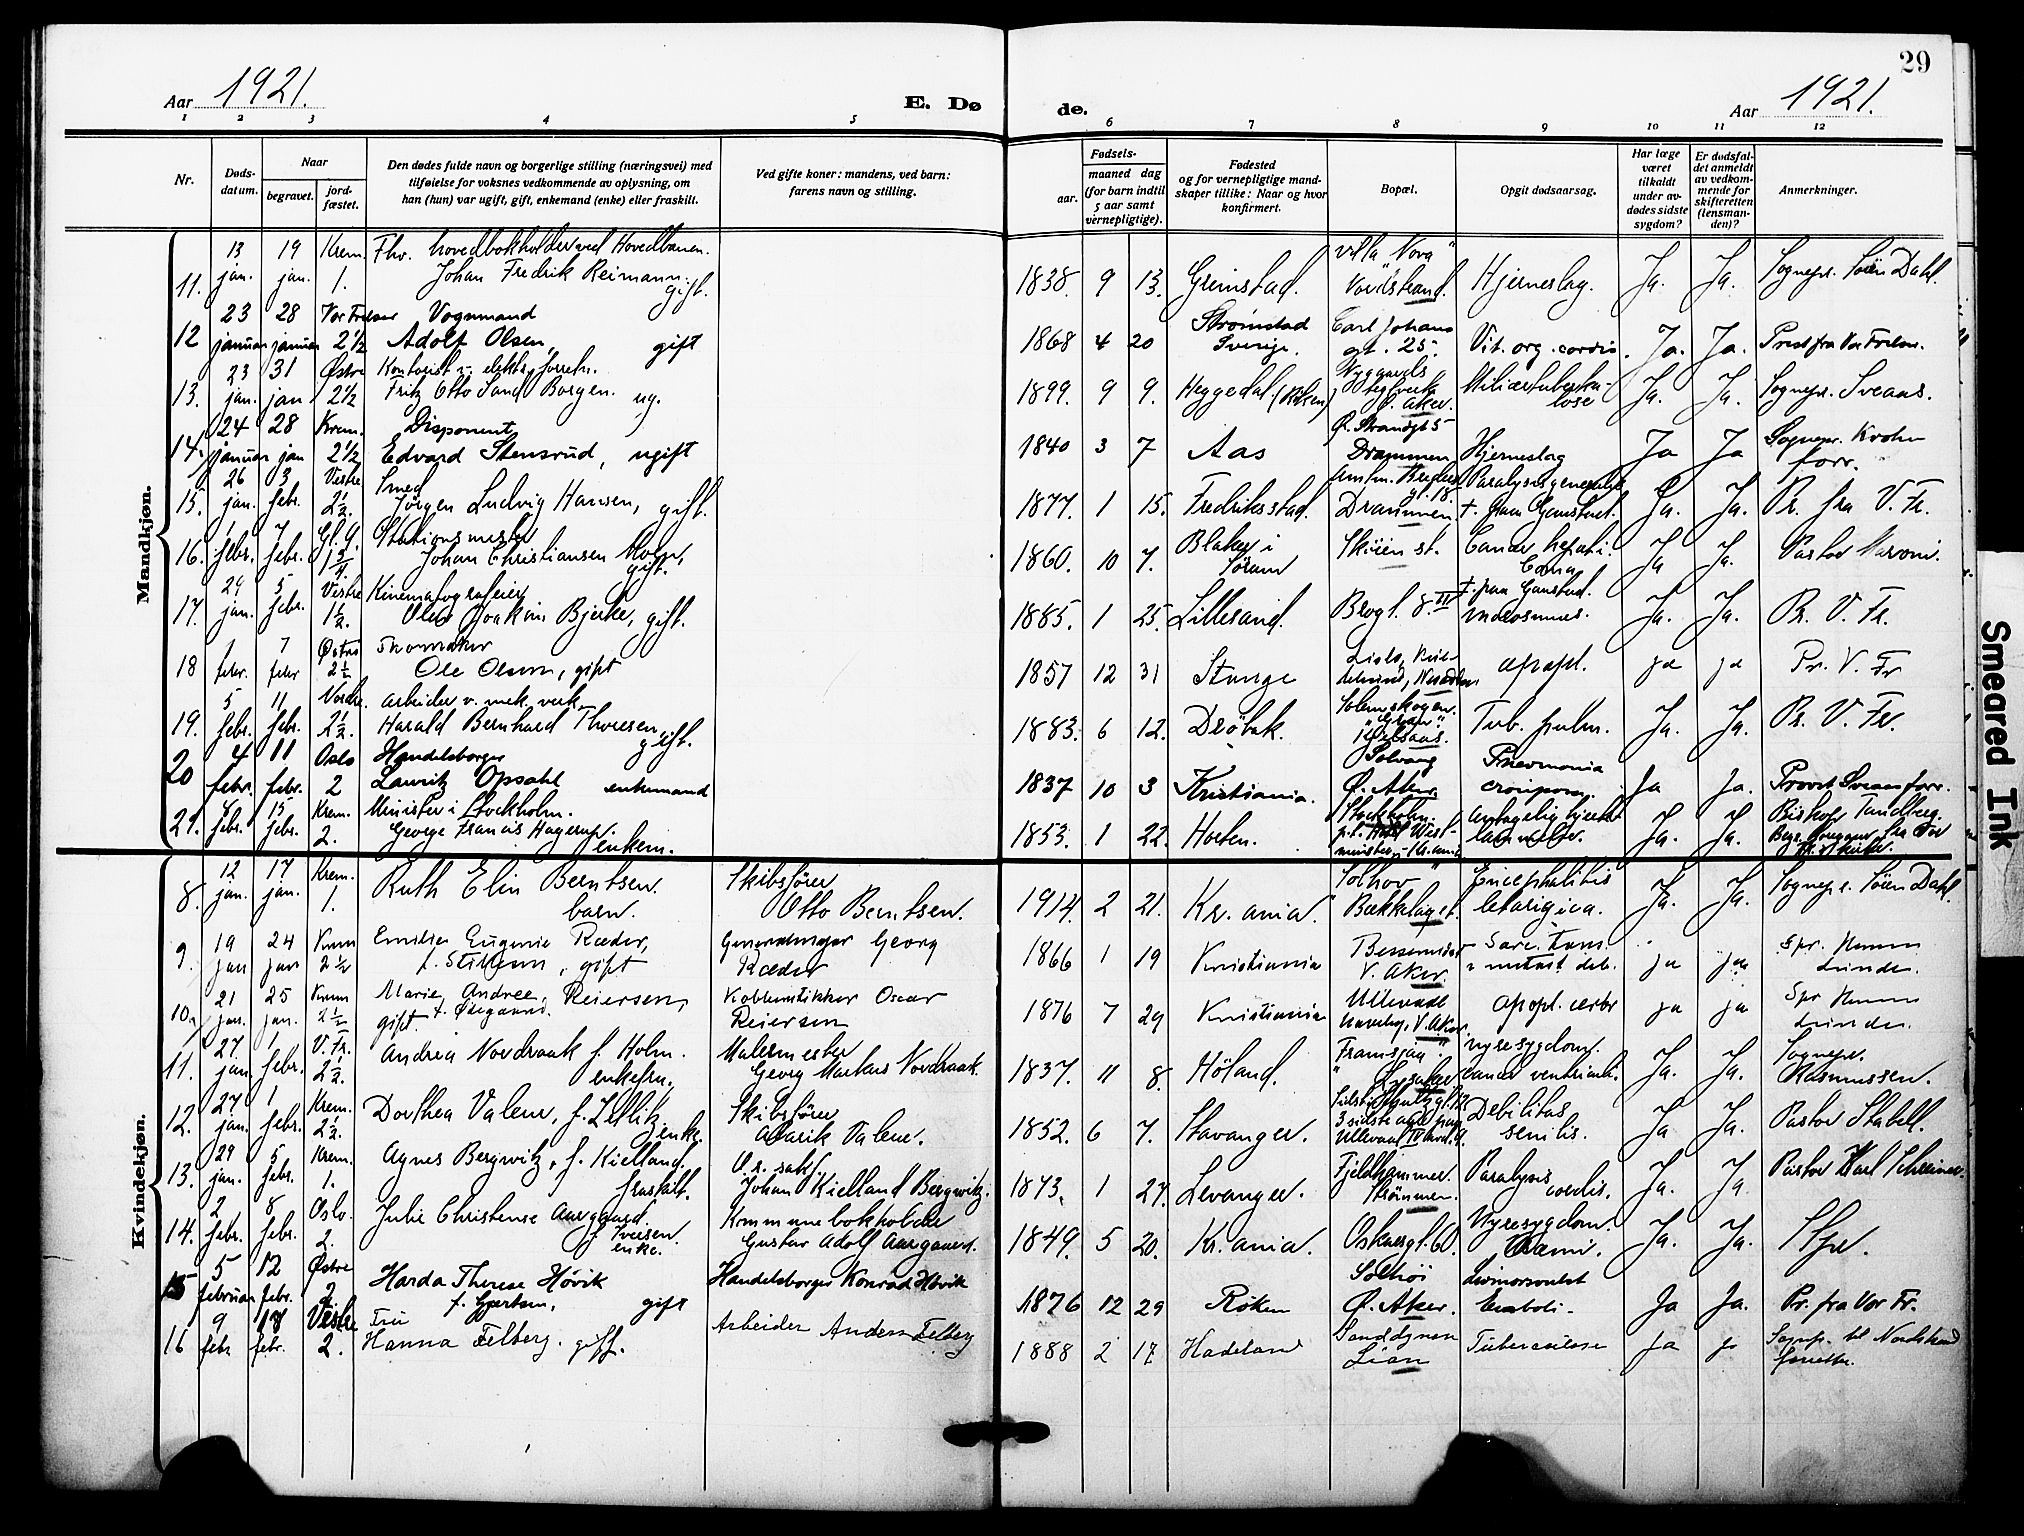 29
Aar 1921.
E. Dø de.
Aar 1921.
1 2 3 4 5 6 7 8 9 10 11 12
Nr.
Døds-datum.
Naar
begravet.
jord-fæstet.
Den dødes fulde navn og borgerlige stilling (næringsvei) med
tilføielse for voksnes vedkommende av oplysning, om
han (hun) var ugift, gift, enkemand (enke) eller fraskilt.
Ved gifte koner: mandens, ved barn:
farens navn og stilling.
Fødsels-
aar.
maaned dag
(for barn indtil
5 aar samt
vernepligtige).
Fødested
og for vernepligtige mand-
skaper tillike: Naar og hvor
konfirmert.
Bopæl.
Opgit dødsaarsag.
Har læge
været
tilkaldt
under av-
dødes sidste
sygdom?
Er dødsfal-
det anmeldt
av vedkom-
mende for
skifteretten
(lensman-
den)?
Anmerkninger.
Mandkjøn.
11. 13 jan. 19 jan. Krem. 1. Fhv. hovedbokholder ved Hovedbanen. Johan Fredrik Reimann. gift. 1838. 9 13. Grimstad. Villa "Nova" Nordstrand. Hjerneslag. Ja. Ja. Sognepr. Søren Dahl.
12 23 januar 28 januar Vor Frelser 2½ Vognmand Adolf Olsen, gift 1868 4 20 Strømstad Sverige. Carl Johans gt. 25. Vit. org. cordis. Ja. Ja. Præst fra Vor Frelser.
13. 23 jan. 31 jan Østre 2½ Kontorist v. elektr. forretn. Fritz Otto Sand Borgen. ug. 1899. 9 9. Heggedal (Røken) Ø. Aker. Miliærtuberkulose Ja. Ja. Sognepr. Sveaas.
14. 24 januar 28 jan Krem. 2½ Disponent Edvard Stensrud, ugift 1840 3 7 Aas Ø. Strandgt 5 Drammen Hjerneslag Ja Ja Sognepr. Krohn forr.
15. 26 jan. 3 febr. Vestre 2½. Smed Jørgen Ludvig Hansen, gift. 1877. 1 15. Fredriksstad. gt. 18. Drammen Paralysis generalis † paa Gaustad. Ja. Ja. Pr. fra V. Fr.
16. 1 febr. 7 febr. Gl. A. Stationsmester Johan Christiansen Moen, gift. 1860. 10 7. Blaker i Sørum Skøien st. Cancer hepatis. Coma Ja Ja. Pastor Maroni.
17. 29 jan. 5 febr. Vestre 1½. Kinematografeier Olaf Joakim Bjerke, gift. 1885. 1 25. Lillesand. Brogt. 8 II † paa Gaustad. Ja. Ja. Pr. V. Fr.
18 1 febr. 7 febr Østre 2½ Skomaker Ole Olsen, gift 1857 12 31 Stange Nesodden apopl. ja ja Pr. V. Fr
19. 5 febr. 11 febr. Nordre. 2½. arbeider v. mek. verk. Harald Bernhard Thoresen, gift. 1883. 6 12. Drøbak. Solemskogen. "Gran". Kjelsaas. Tub. pulm. Ja. Ja. Pr. V. Fr.
20 4 febr. 11 febr. Oslo 2 Handelsborger Lauritz Opsahl enkemand 1837 10 3 Kristiania. Solvang Ø. Aker. Pneumonia crouposa. Ja Ja. Provst Sveaas forr.
21. febr. 15 febr. Krem. 2. Minister i Stockholm. George Francis Hagerup. enkem. 1853. 1 22. Horten. Stockholm. p.t. Hotel Westminster - Kr.ania antagelig hjerte Ja. Ja. Biskop Tandberg.
Kvindekjøn.
8. 12 jan. 17 jan. Krem. 1. Ruth Elin Berntsen. barn. Skibsfører Otto Berntsen. 1914. 2 21. Kr.ania. "Solhov" Bækkelaget. Encephalitis letargica. Ja. Ja. Sognepr. Søren Dahl.
9. 19 jan 24 jan Krem 2½ Emilie Eugenie Ræder, gift Generalmajor Georg Ræder 1866 1 19 Kristiania Bessemer V. Aker. ja ja Spr. Hansen Linder.
10. 21 jan. 25 jan. Krem 2½ Marie Andrea Reiersen, gift. Kobberstikker Oscar Reiersen 1876 7 29 Kristiania Ullevaal Haveby, V. Aker. apopl. cerbr ja ja Spr Hansen Linder.
11. 27 jan 1 febr. V. Fr. 2½. Andrea Nordraak f. Holm. enkefru. Malermester Georg Markus Nordraak. 1837. 11 8. Høland. "Framsjaa". Lysaker Nyresygdom. Cancer ventriculi. Ja. Ja. Sognepr. Rasmussen.
12. 27 jan. 1 febr. Krem. 2½. Dorthea Valeur, f. Zetlitz, enke. Skibsfører Alarik Valeur. 1852. 6 7. Stavanger. Debilitas senilis. Ja Ja. Pastor Stabell.
13. 29 jan. 5 febr. Krem. 1. Agnes Bergwitz, f. Kielland. fraskilt. O.r. sakf. Johan Kielland Bergwitz. 1873. 1 27. Levanger. Fjeldhammer Strømmen. Paralysis cordis. Ja. Ja Pastor Karl Schreiner
14. 2 febr. 8 febr. Oslo. 2. Julie Christense Aargaard. f. Iversen. enke. Kommunebokholder Gustav Adolf Aargaard. 1849. 5 20. Kr.ania. Oskarsgt. 60. Nyresygdom. Uræmi. Ja. Ja. Stpr.
15 5 februar 12 febr. Østre 2 Harda Therese Høvik f. Gjertsen, gift Handelsborger Konrad Høvik 1876 12 29 Røken Solhøi Ø. Aker. Emboli - Ja Ja. Pr. fra Vor Fr.
16 9 febr 18 febr. Vestre 2. Fru Hanna Felberg. gift. Arbeider Anders Felberg 1888 2 17 Hadeland Sanddynen Lian Tuberculose Ja Ja Sognepr. til Nordstrand forrettr.
Smeared Ink